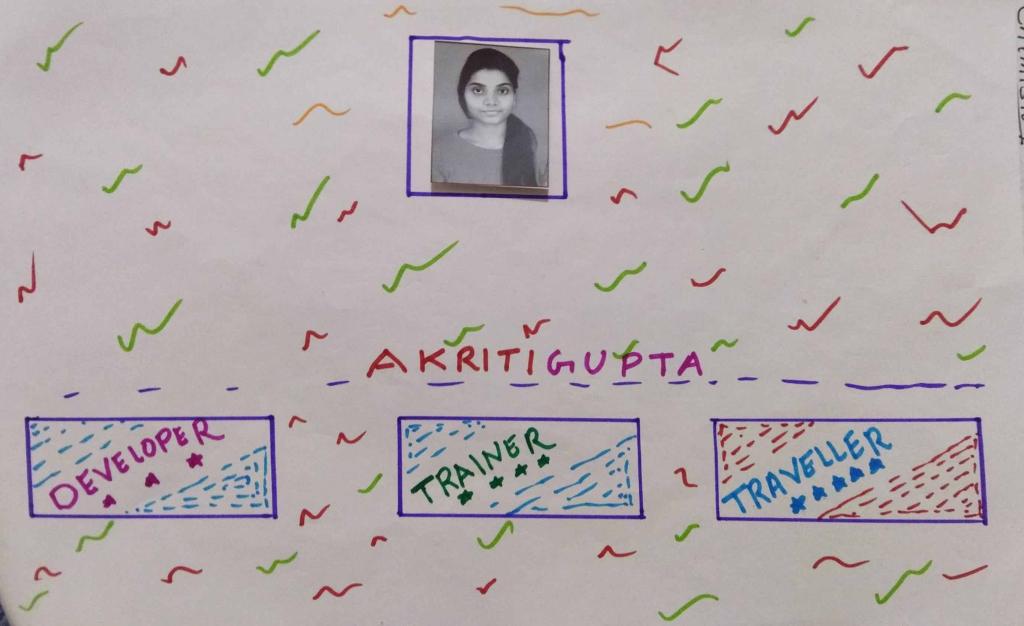 AKRITI GUPTA
DEVELOPER
TRAINER
TRAVELLER